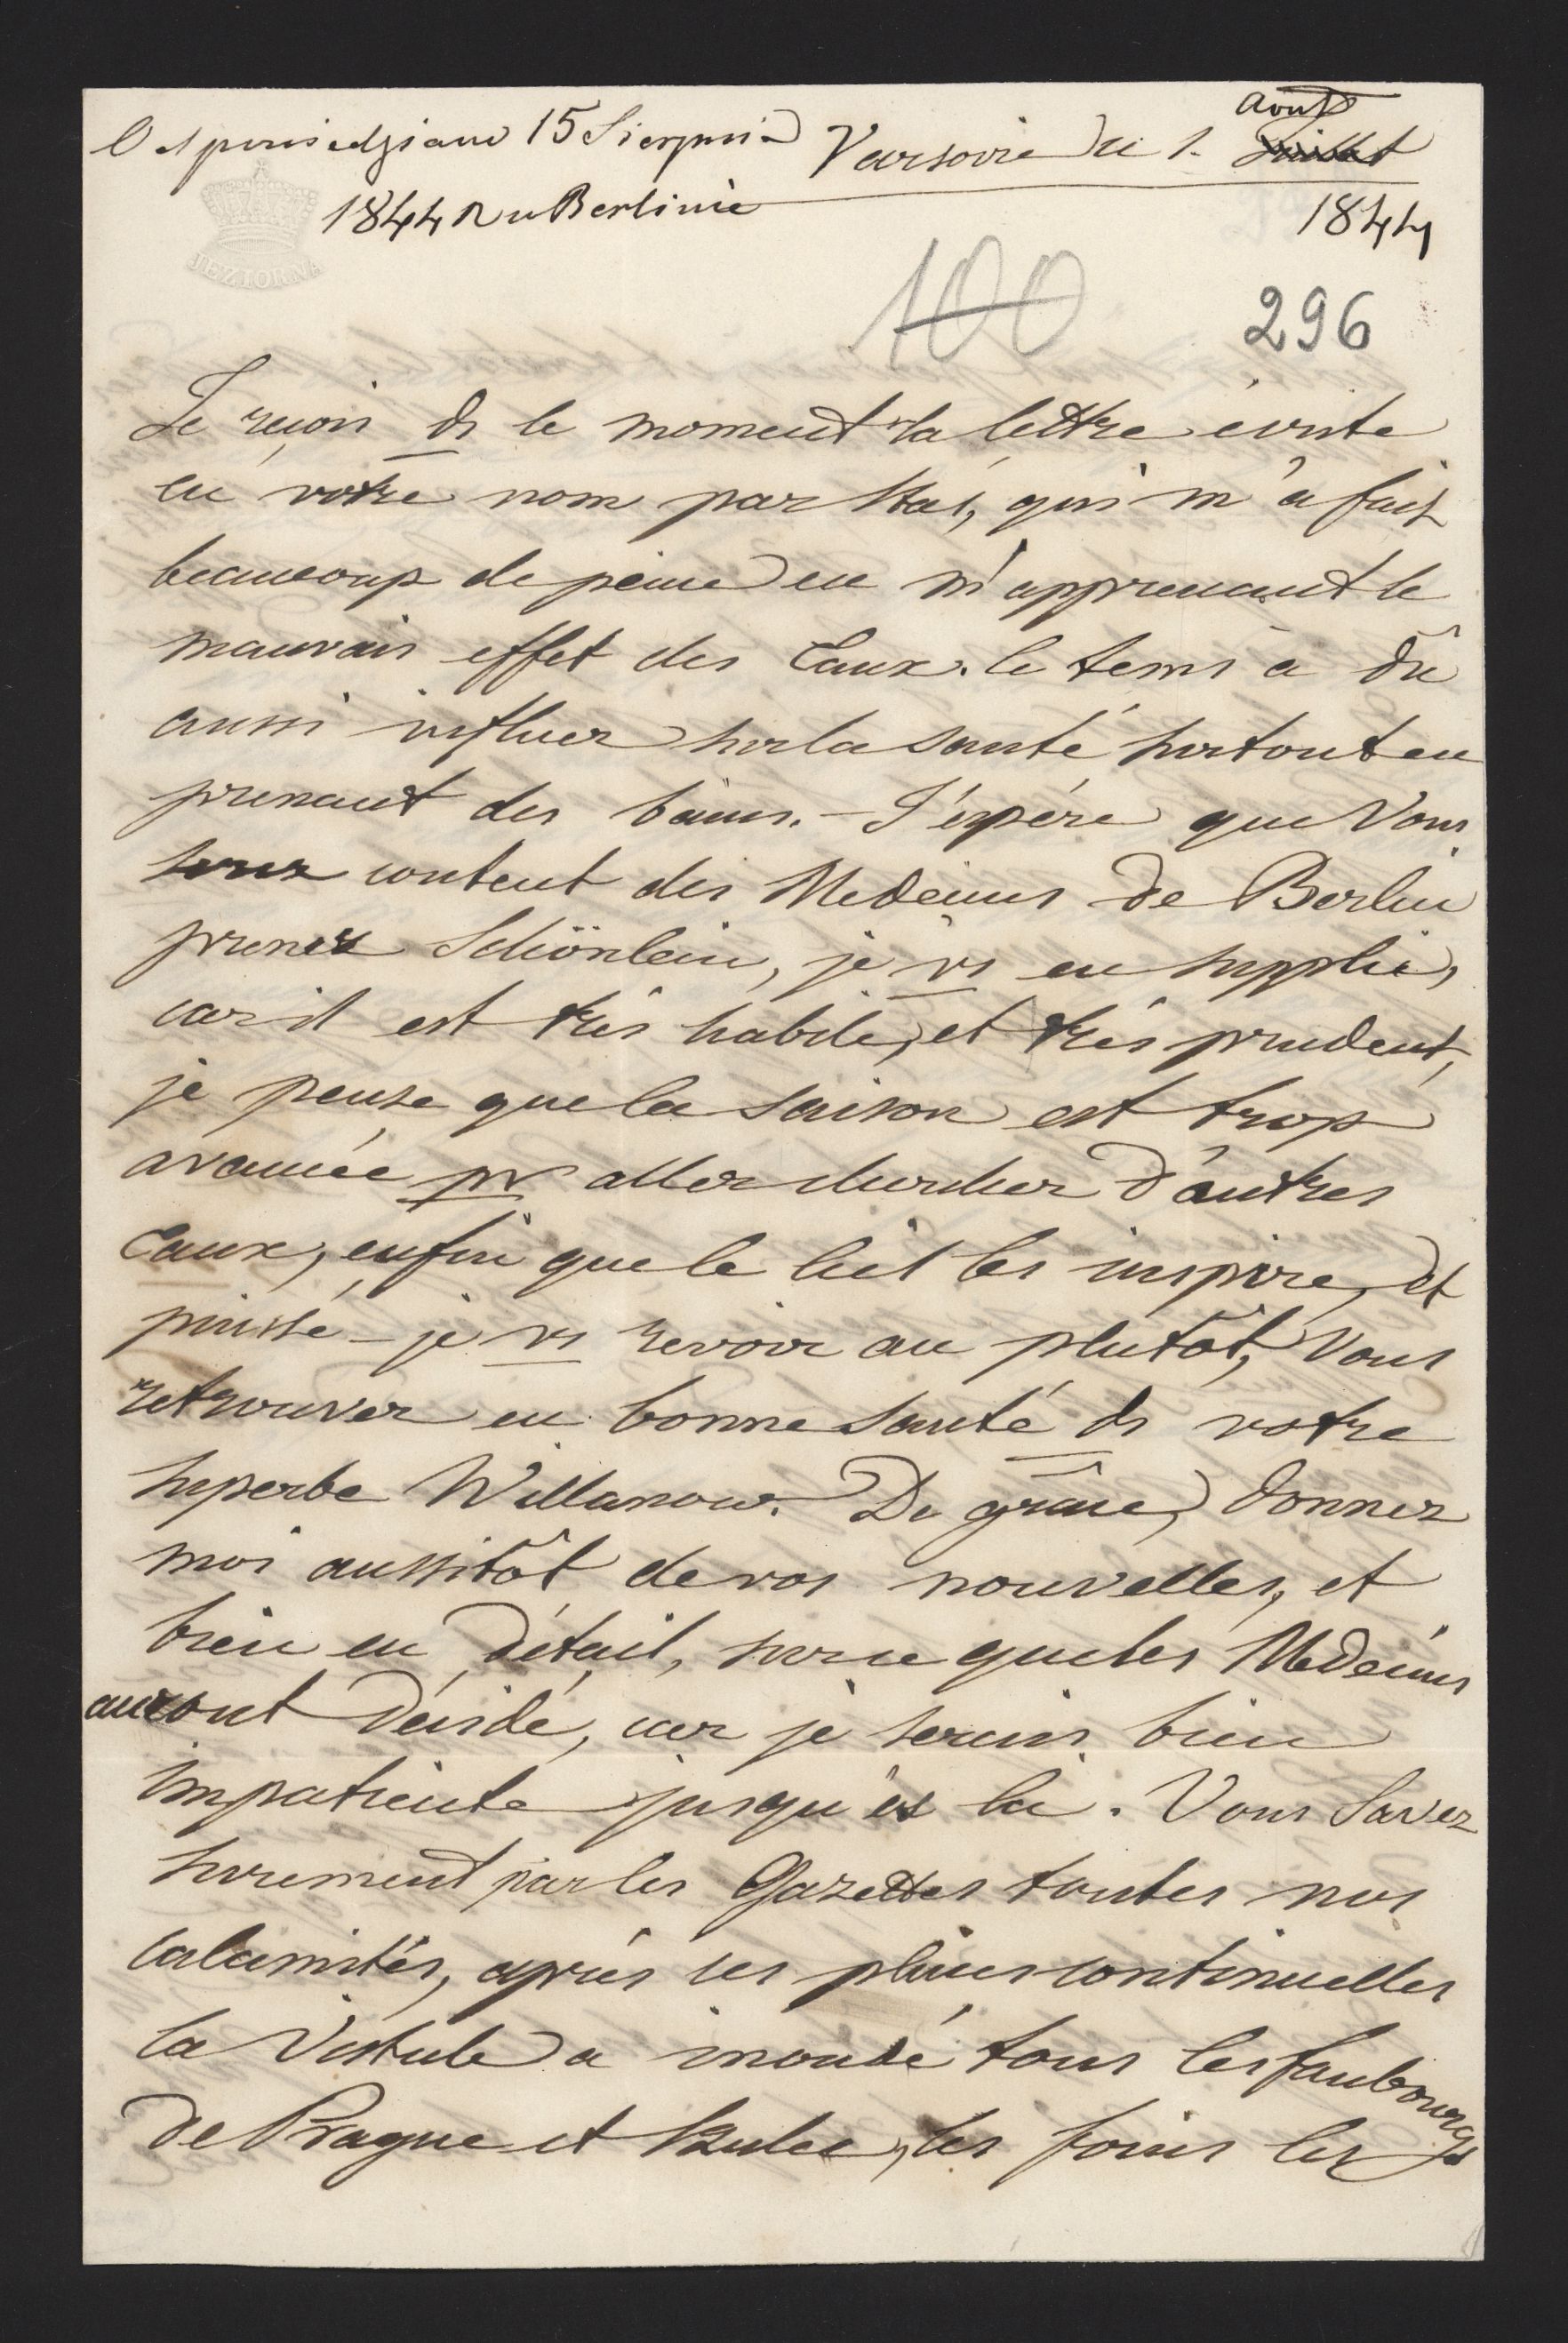 Odpowiedziano 15 Sierpnia
1844 R w Berlinie
Varsovie ce 1. Juillet Aout
1844
JEZIORNA
100
296
Je reçois ds le moment la lettre écrite
en votre nom par Stas, qui m'a fait
beaucoup de peine en m'apprenant le
mauvais effet des Eaux. le tems a dû
aussi influer sur la santé surtout en
prenant des bains. - J'éspére que Vous
serez content des Medecins de Berlin
prenez Schönlein, je vs en supplie,
car il est très habile, et très prudent,
je pense que la saison est trop
avancée pr aller chercher d'autres
Eaux, enfin que le ciel les inspire, et
puissé-je vs revoir au plutôt, Vous
retrouver en bonne santé ds votre
superbe Willanow. De grâce, donnez
moi aussitôt de vos nouvelles, et
bien en détail, sur ce que les Medecins
auront décidé, car je serais bien
impatiente jusqu'à là. Vous savez
surement par les Gazettes toutes nos
calamités, après ces pluies continuelles
la Vistule a inondé tous les faubourgs
de Prague et les foins les